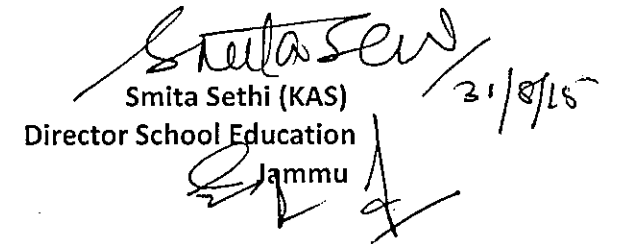 Smita Sethi
31/8/15
Smita Sethi (KAS)
Director School Education
Jammu